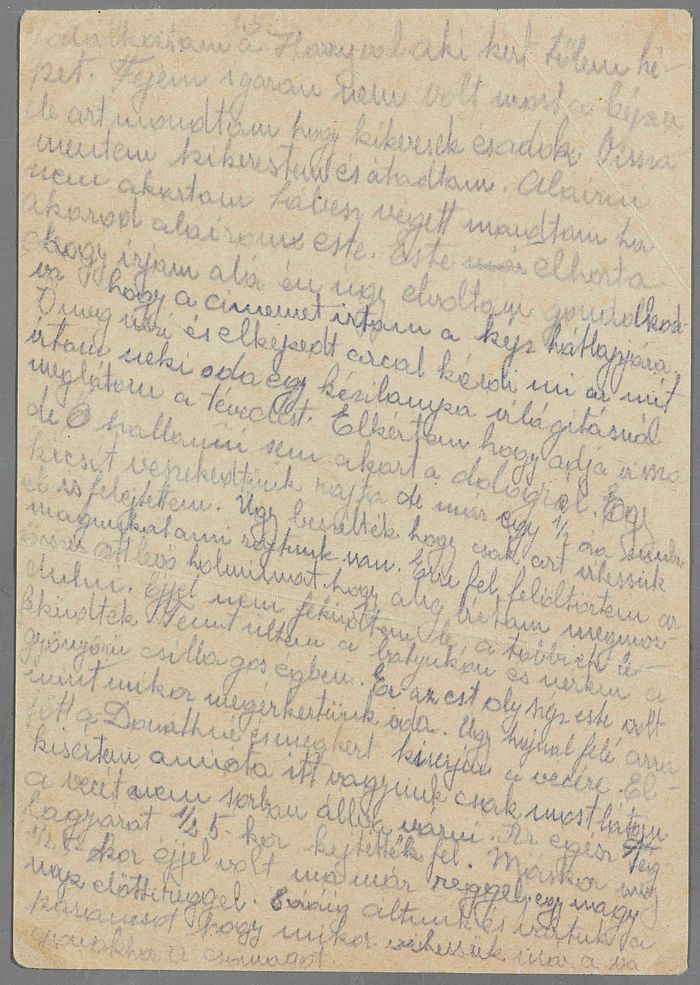 találkoztam a Harryval aki kért tőlem ké-
pet. Fejem igazán nem volt most a
de azt mondtam hogy kikeresek és adok. Vissza
mentem kikerestem és átadtam. Aláirni
nem akartam mondtam ha
akarod aláirom este. Este már elhozta
hogy írjam alá én úgy elvoltam gondolkod-
va hogy a cimemet irtam a kép hátlapjára.
Ő meg nézi és elképedt arcal kérdi mi az mit
irtam neki oda egy kézilámpa világitásnál
meglátom a tévedést. Elkértem hogy adja vissza
de Ő hallani sem akart a dologról. Egy
kicsit rajta de már egy 1/2 óra mulva
el is felejtettem. Úgy beszélték hogy csak azt vihessük
magunkal ami rajtunk van. Erre fel, felöltöztem az
összes ott levő holmimat hogy alig birtam megmoz-
dulni. Éjjel nem feküdtem le, a többiek le-
feküdtek. Fennt ültem a batyukon és néztem a
gyönyörü csillagos egben. Ez az est oly szép este volt
mint mikor megérkeztünk oda. Ugy hajnal felé arra
jött a Donáthné és megkért kisérjem a vécére. El-
kisértem amióta itt vagyunk csak most látom
a vécét nem sorban állva várni. Az egész
1/2 5-kor keltették fel. Máskor még
1/2 5-kor éjjel volt ma már reggel, egy nagy
nap előtti reggel. óráig álltunk és vártuk a
parancsot hogy mikor vihessük már a va-
gonokhoz a csomagot